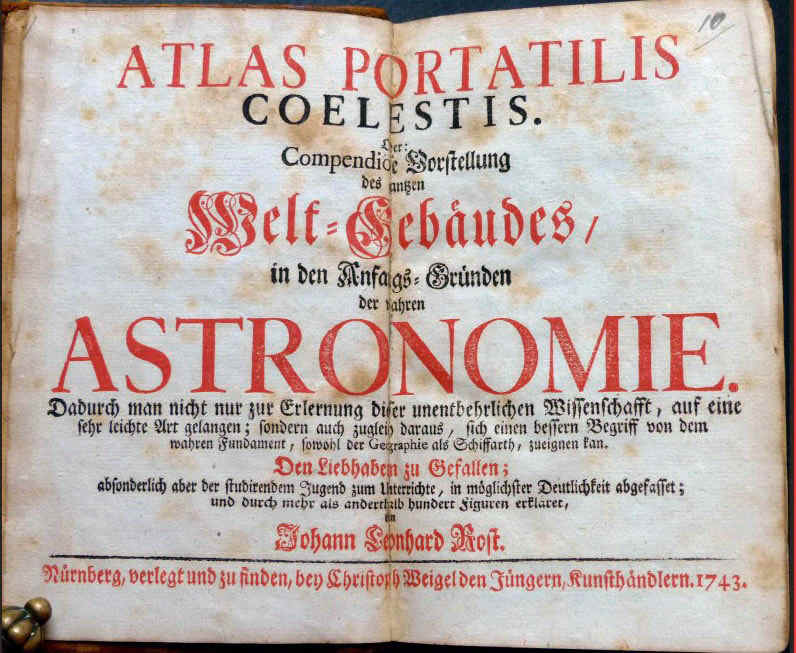 10
ATLAS PORTATILIS
COELESTIS.
Oder:
Compendiöse Vorstellung
des gantzen
Welt-Gebäudes/
in den Anfangs-Gründen
der wahren
ASTRONOMIE.
Dadurch man nicht nur zur Erlernung dieser unentbehrlichen Wissenschafft, auf eine
sehr leichte Art gelangen; sondern auch zugleich daraus, sich einen bessern Begriff von dem
wahren Fundament, sowohl der Geographie als Schiffarth, zueignen kan.
Den Liebhabern zu Gefallen;
absonderlich aber der studirenden Jugend zum Unterrichte, in möglichster Deutlichkeit abgefasset;
und durch mehr als anderthalb hundert Figuren erkläret,
Johann Leonhard Rost.
Nürnberg, verlegt und zu finden, bey Christoph Weigel den Jüngern, Kunsthändlern. 1743.